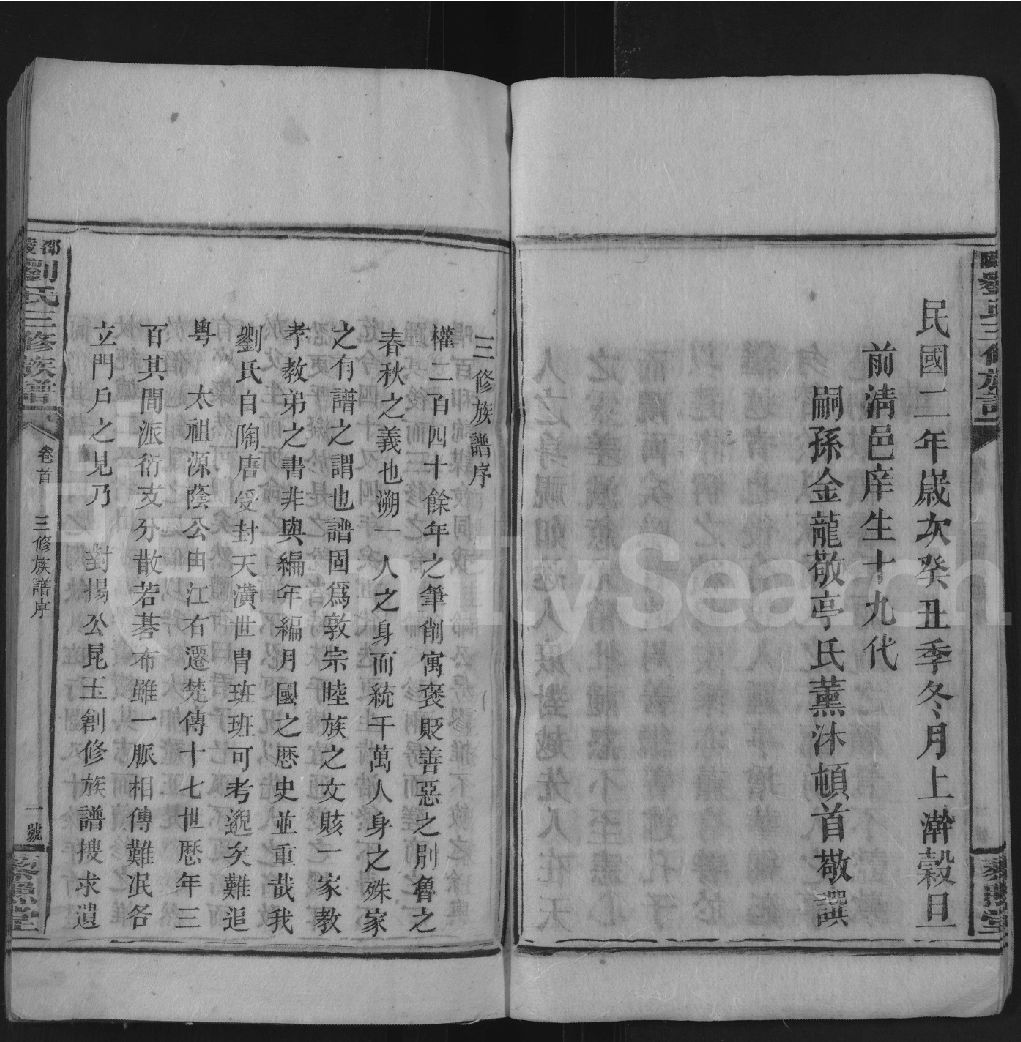 民國二年歲次癸丑季冬月上澣穀旦
前淸邑庠生十九代
嗣孫金龍敬亭氏薰沐頓首敬譔
三修族譜序
權二百四十餘年之筆削寓褒貶善惡之別魯之
春秋之義也溯一人之身而統千萬人身之殊家
之有譜之謂也譜固爲敦宗睦族之文賅一家敎
孝敎弟之書非與編年編月國之歷史並重哉我
劉氏自陶唐受封天潢世胄班班可考邈矣難追
粤 太祖源蔭公由江右遷楚傳十七世歷年三
百其間派衍支分散若碁布雖一脈相傳難泯各
立門戶之見乃 對揚公昆玉創修族譜搜求遺
劉氏三修族譜
卷首
三修族譜序
一號
FamilySearch